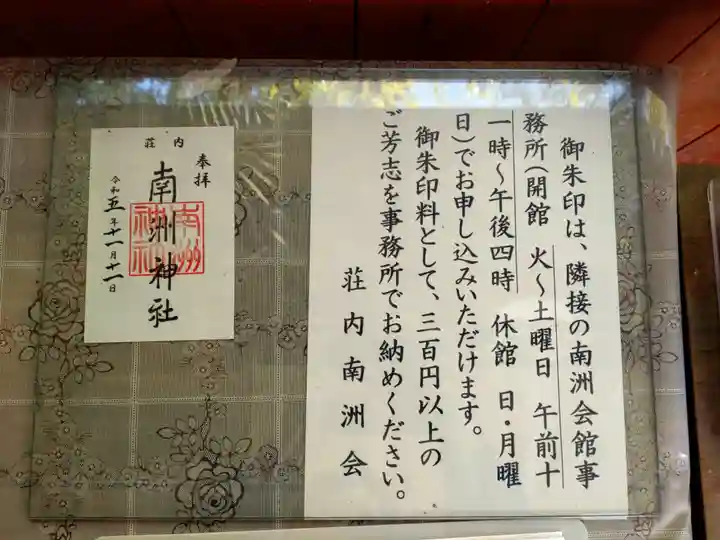 御朱印は、隣接の南洲会館事
務所(開館 火～土曜日 午前十
一時～午後四時 休館 日・月曜
日)でお申し込みいただけます。
御朱印料として、三百円以上の
ご芳志を事務所でお納めください。
荘内南洲会
奉拝
荘内
南洲神社
南洲
神社
令和五年十一月十二日